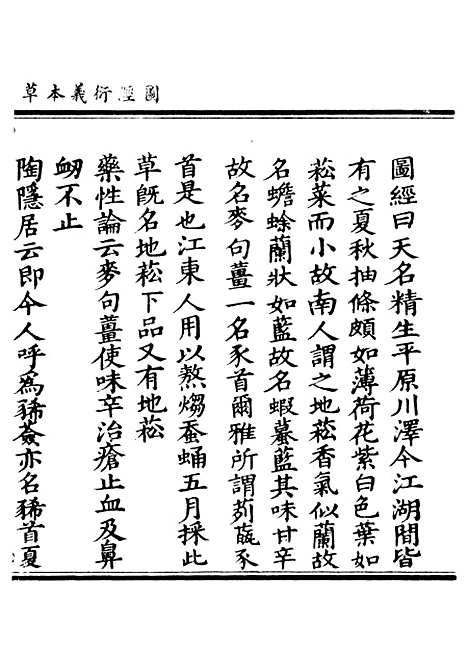 圖經衍義本草
圖經曰天名精生平原川澤今江湖間皆
有之夏秋抽條頗如薄荷花紫白色葉如
菘菜而小故南人謂之地菘香氣似蘭故
名蟾蜍蘭狀如藍故名蝦蟇藍其味甘辛
故名麥句薑一名豕首爾雅所謂茢薽豕
首是也江東人用以熬㷟蚕蛹五月採此
草旣名地菘下品又有地菘
藥性論云麥句薑使味辛治瘡止血及鼻
衂不止
陶隱居云即今人呼為豨薟亦名豨首夏